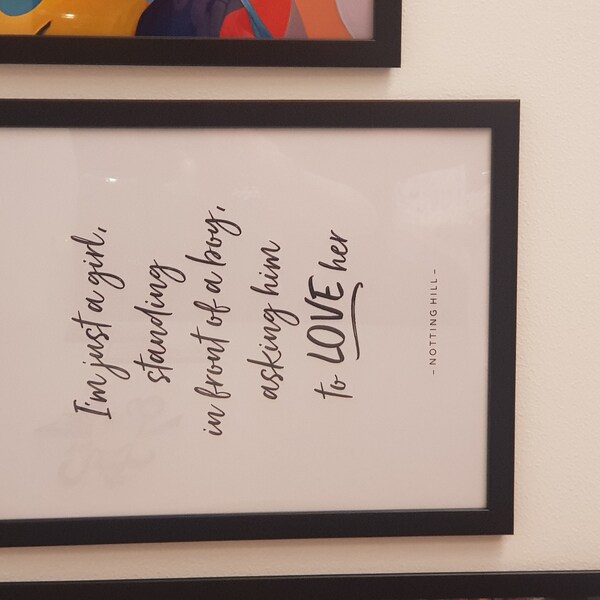 I'm just a girl,
standing
in front of a boy,
asking him
to LOVE her
– NOTTING HILL –